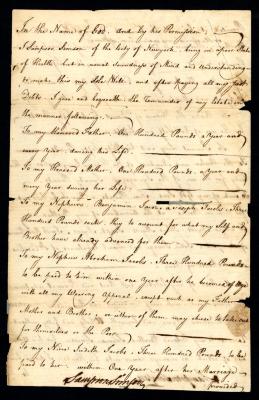 In the Name of God. And by his Permission
I Sampson Simson of the City of Newyork being in a poor State
of Health, but in usual Soundings of Mind and Understanding
to make this my last Will, and after Paying all my Just
Debts. I give and bequeath the remainder of my Estate in
the manner following.
To my Honored Father, One Hundred Pounds a Year and
every Year during his Life
To my Honored Mother, One Hundred Pounds a Year and
every Year during her Life
To my Nephews Benjamin Jacobs, & Joseph Jacobs, Three
Hundred Pounds each they to account for what my Self and
Brother have already advanced for them
To my Nephew Abraham Jacobs, Three Hundred Pounds
to be paid to him within one Year after he becomes of Age
with all my Wearing Apparel, except such as my Father
Mother and Brother, or either of them may chose to take out
for themselves or the Poor
To my Niece Judith Jacobs, Three Hundred Pounds, to be
paid to her within One Year after her Marriage
Sampson Simson
provided